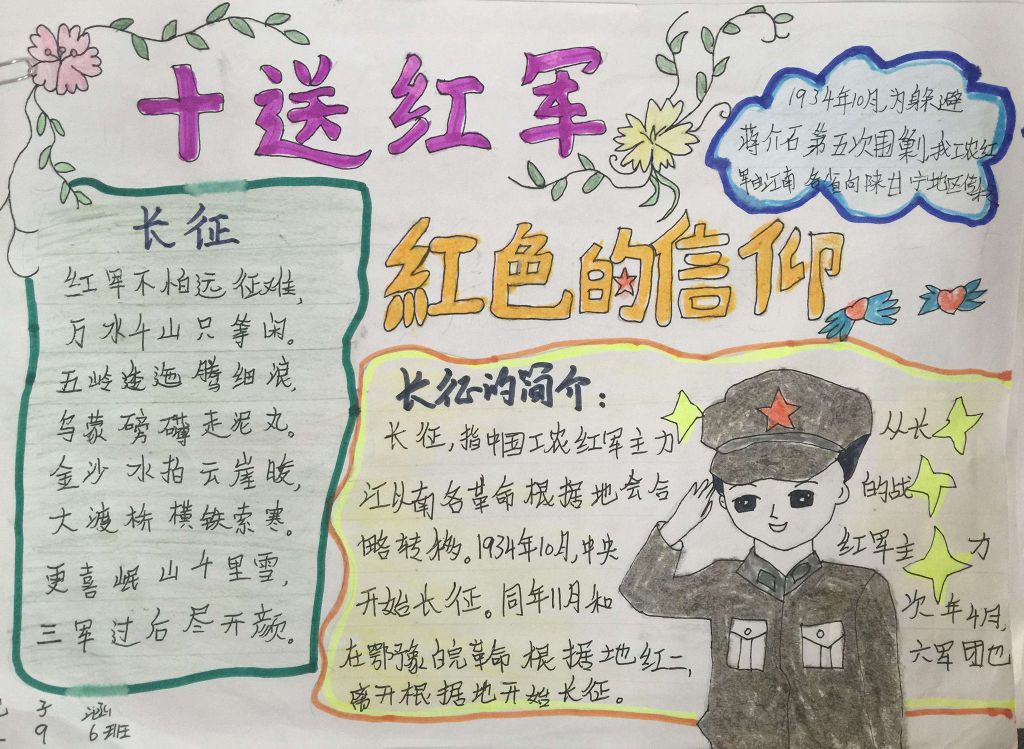 十送红军
1934年10月,为躲避
蒋介石第五次围剿,我工农红
军由江南各省向陕甘宁地区
长征
红军不怕远征难,
万水千山只等闲。
五岭逶迤腾细浪,
乌蒙磅礴走泥丸。
金沙水拍云崖暖,
大渡桥横铁索寒。
更喜岷山千里雪,
三军过后尽开颜。
紅色的信仰
长征的简介:
长征,指中国工农红军主力 从长
江以南各革命根据地会合 的战
略转移。1934年10月,中央 红军主力
开始长征。同年11月和 次年4月,
在鄂豫皖革命根据地红二、 六军团也
离开根据地开始长征。
子涵
9 6班